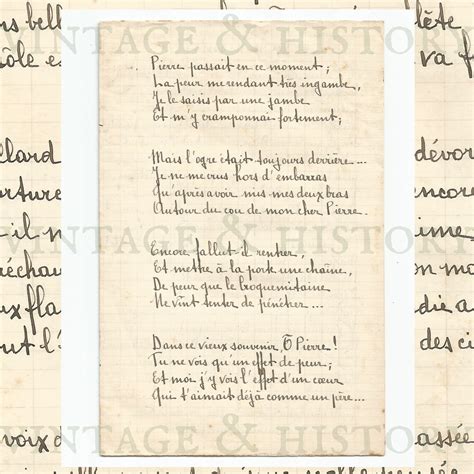 Pierre passait en ce moment;
La peur me rendant très ingambe,
Je le saisis par une jambe
Et m'y cramponnai fortement;
Mais l'ogre était toujours derrière...
Je ne me crus hors d'embarras
Qu'après avoir mis mes deux bras
Autour du cou de mon cher Pierre.
Encore fallut-il rentrer,
Et mettre à la porte une chaîne,
De peur que le croquemitaine
Ne vînt tenter de pénétrer...
Dans ce vieux souvenir Ô Pierre!
Tu ne vois qu'un effet de peur;
Et moi j'y vois l'effet d'un cœur
Qui t'aimait déjà comme un père...
VINTAGE & HISTORY
VINTAGE & HISTORY
VINTAGE & HISTORY
VINTAGE & HISTORY